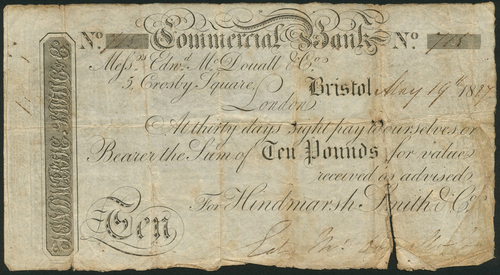 No. Commercial Bank No. 715
Messrs. Edwd. McDouall & Co.
5, Crosby Square,
London
Bristol May 19th 1817
At thirty days sight pay to ourselves or
Bearer the Sum of Ten Pounds for value
received as advised
Ten
For Hindmarsh Smith & Co.